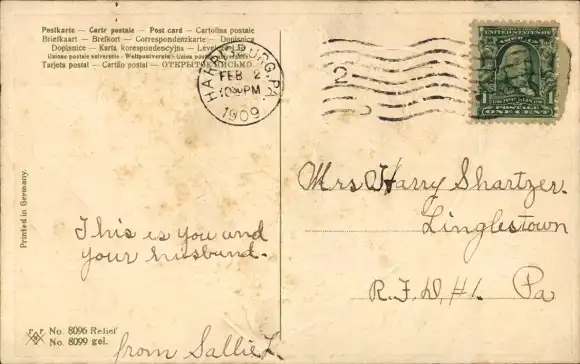 Postkarte — Carte postale — Post card — Cartolina postale
Briefkaart — Brefkort — Correspondenzkarte — Dopisnice
Dopisnice — Karta korespondencyjna —
Unione postale universale - Weltpostverein -
Tarjeta postal — Cartão postal — ОТКРЫТОЕ ПИСЬМО.
HARRISBURG, PA.
FEB 2
10 30 PM
1909
2
UNITED STATES OF
1 1
POSTAGE
ONE CENT
Mrs Harry Shartzer.
Linglestown
R.F.D, #1. Pa
This is you and
your husband.
from Sallie L.
Printed in Germany.
No. 8096 Relief
No. 8099 gel.